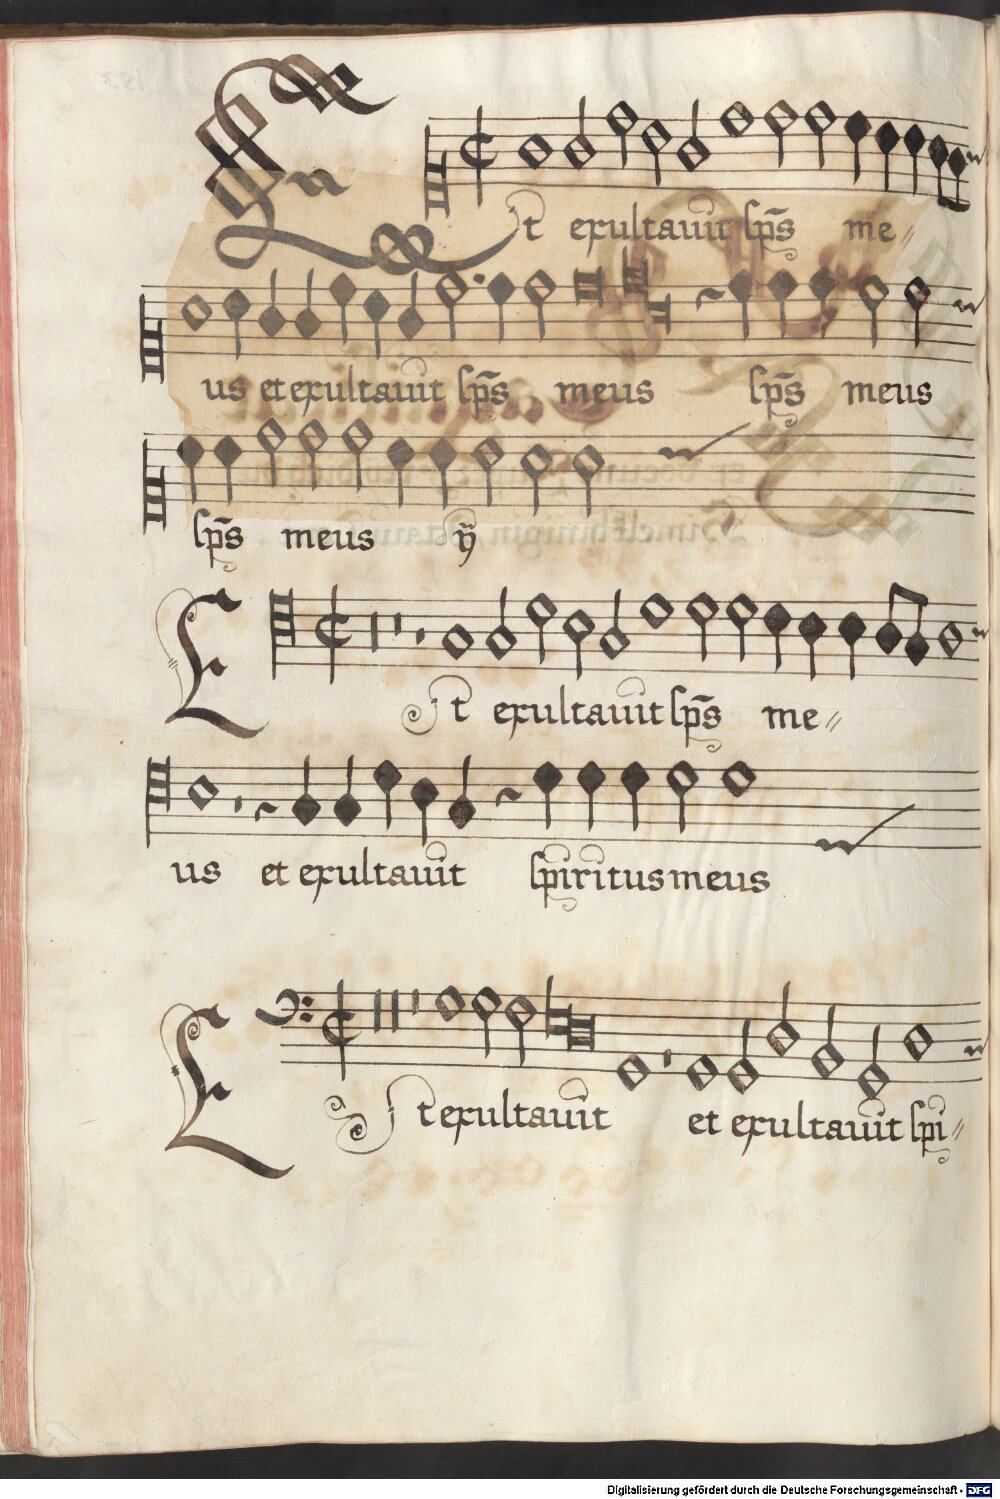 Et exultauit sp̄s me〃
us et exultauit sp̄s meus sp̄s meus
sp̄s meus ÿ
Et exultauit sp̄s me〃
us et exultauit spiritus meus
Et exultauit et exultauit spi〃
Digitalisierung gefördert durch die Deutsche Forschungsgemeinschaft - DFG